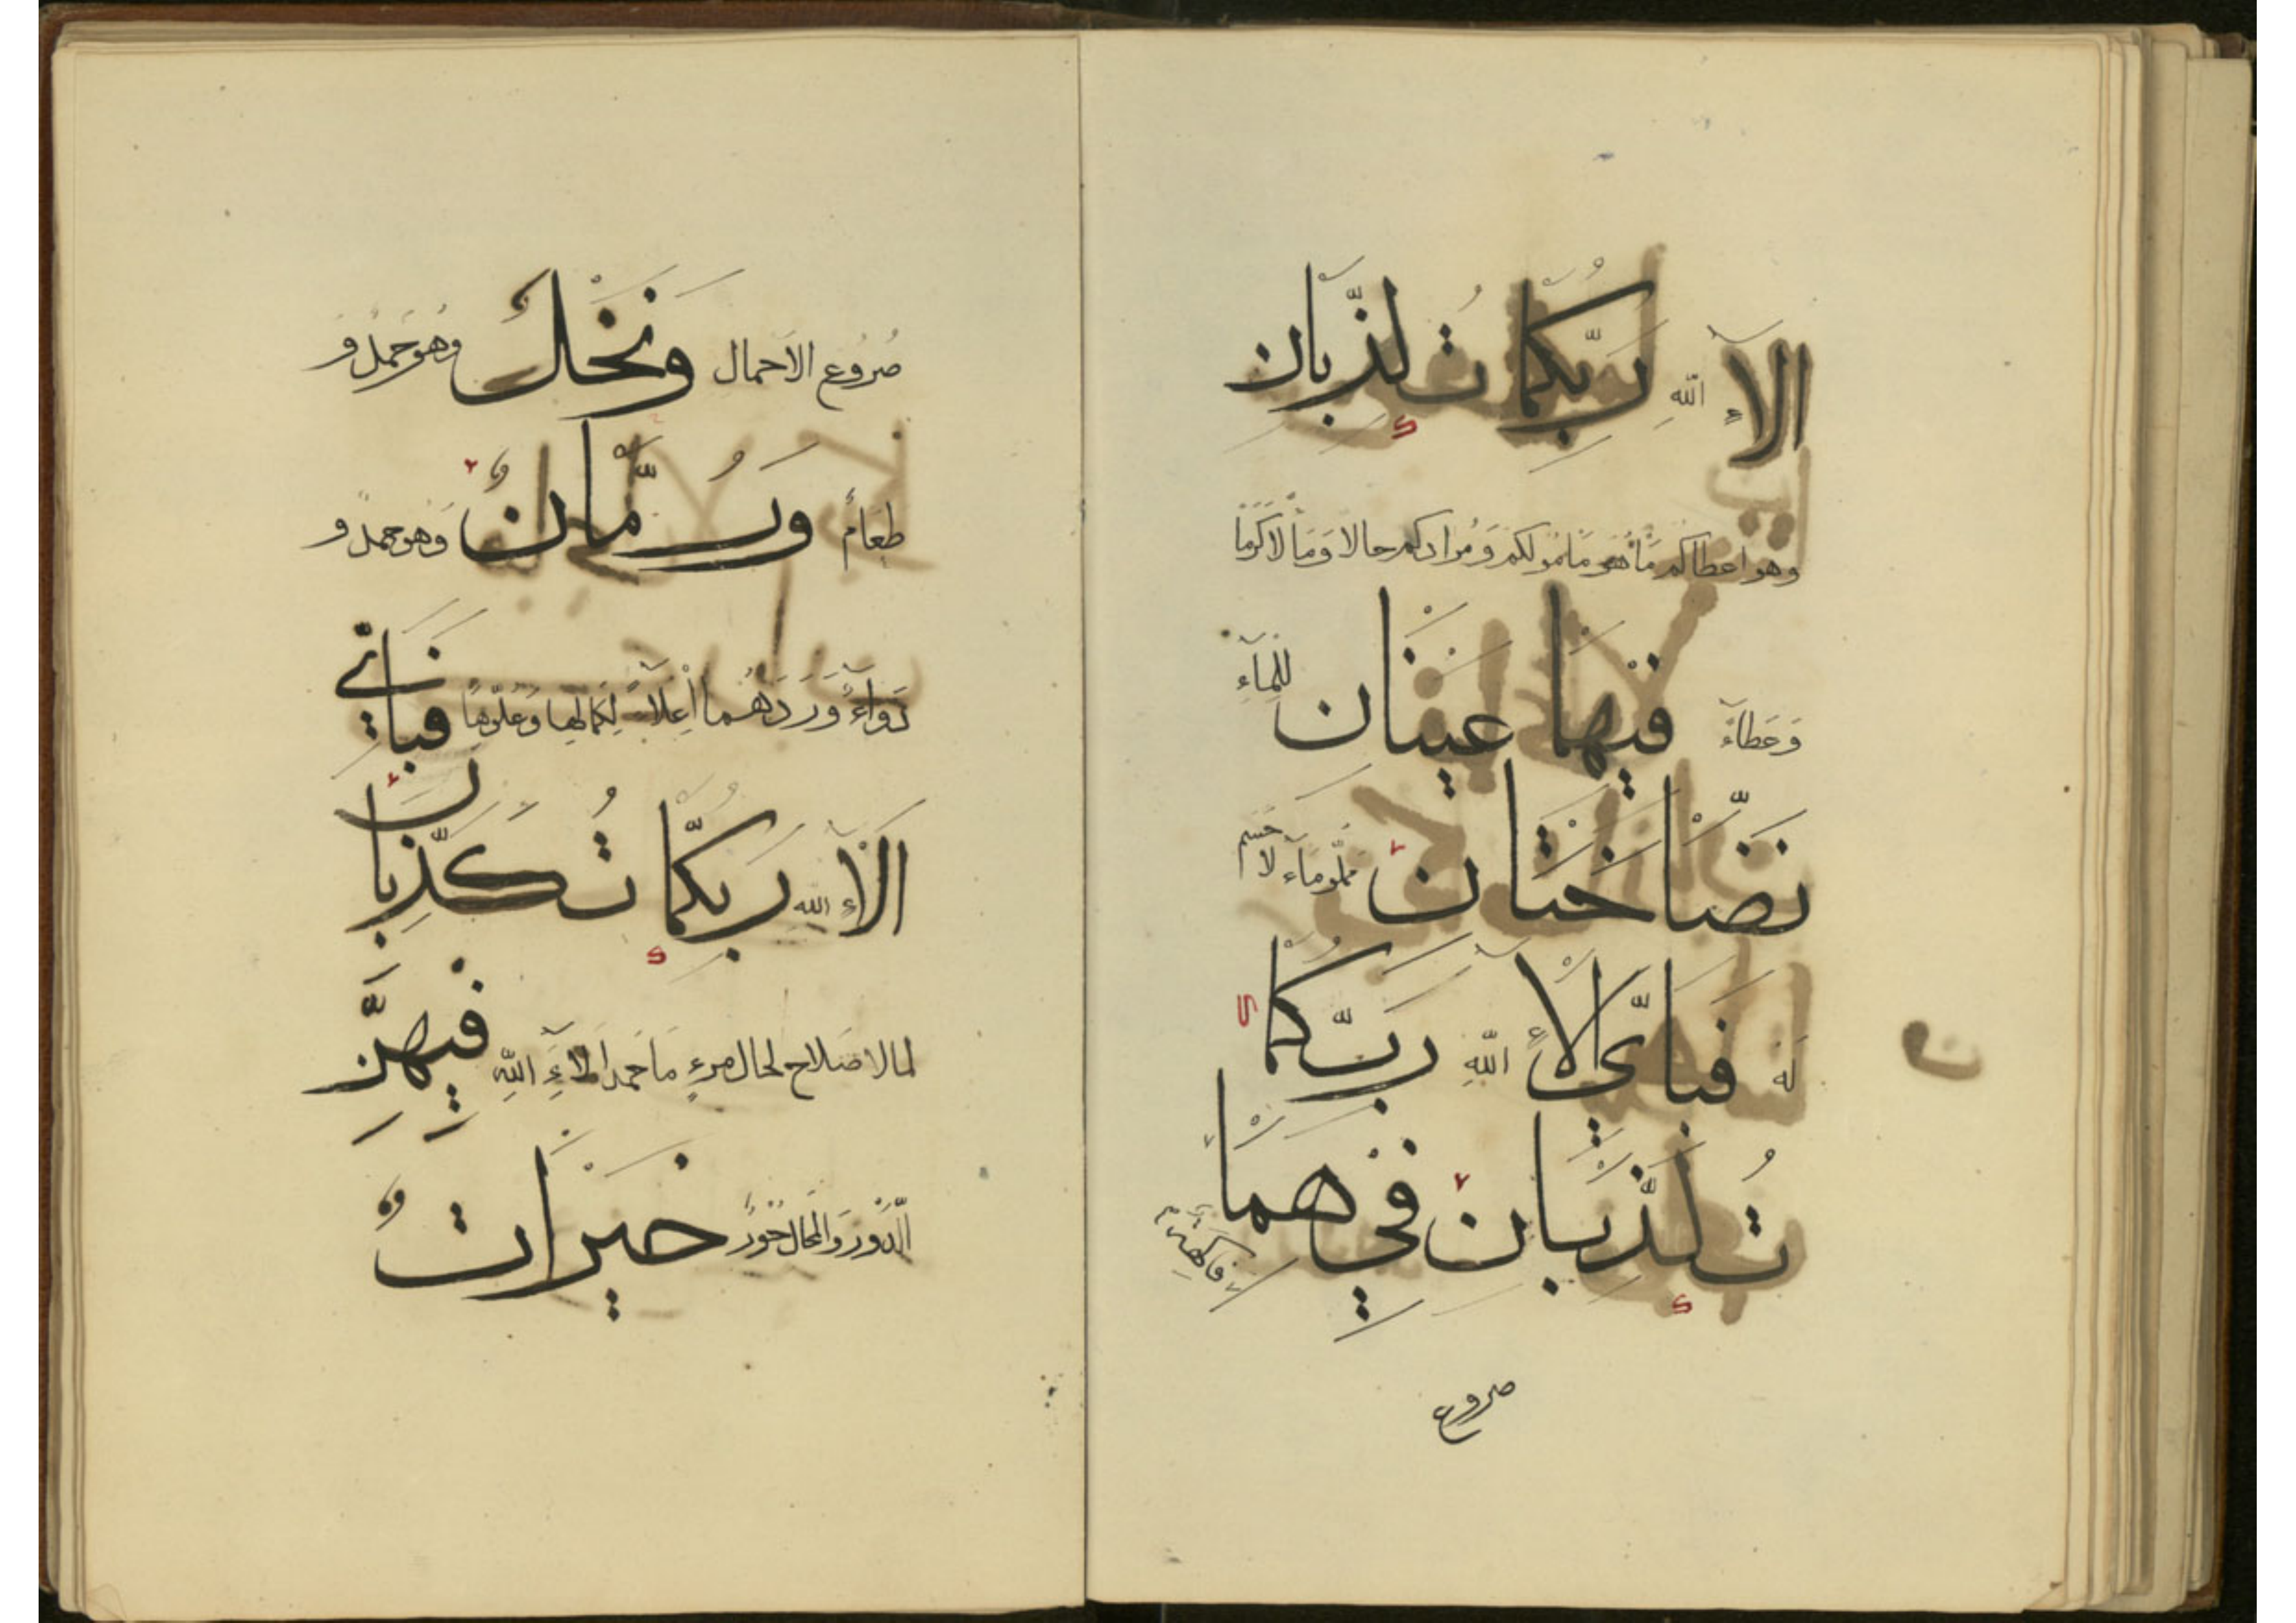 الآءِ اللهِ رَبِّكُمَا تُكَذِّبَانِ
وهو اعطاكم مَا هُوَ مَامُولكم وَمُرَادكم حالا وَمَالا كَرَمًا
وَعَطَاءً فِيْهِمَا عَيْنَانِ لِلْمَآءِ
نَضَّاخَتَانِ مملّو مآء لا حَسْم
لَهُ فَبِاَيِّ الآءِ اللهِ رَبِّكُمَا
تُكَذِّبَانِ فِيْهِمَا فَاكِهَةٌ
صروع
صُرُوع الاَحمال وَنَخْلٌ وهُو حَملٌ وَ
طَعَامٌ وَرُمَّانٌ وَهُو حمل و
دَوَآءٌ وَرَدَهُمَا اِعْلاءً لِكَمَالِهَا وَعُلُوِّهَا فَبِاَيِّ
الآءِ اللهِ رَبِّكُمَا تُكَذِّبَانِ
لما لا صَلاح لحال مرءٍ مَا حَمِدَ الآءَ اللهِ فِيْهِنَّ
الدُّوْر وَالمحَال حُوْرٌ خَيْرَاتٌ